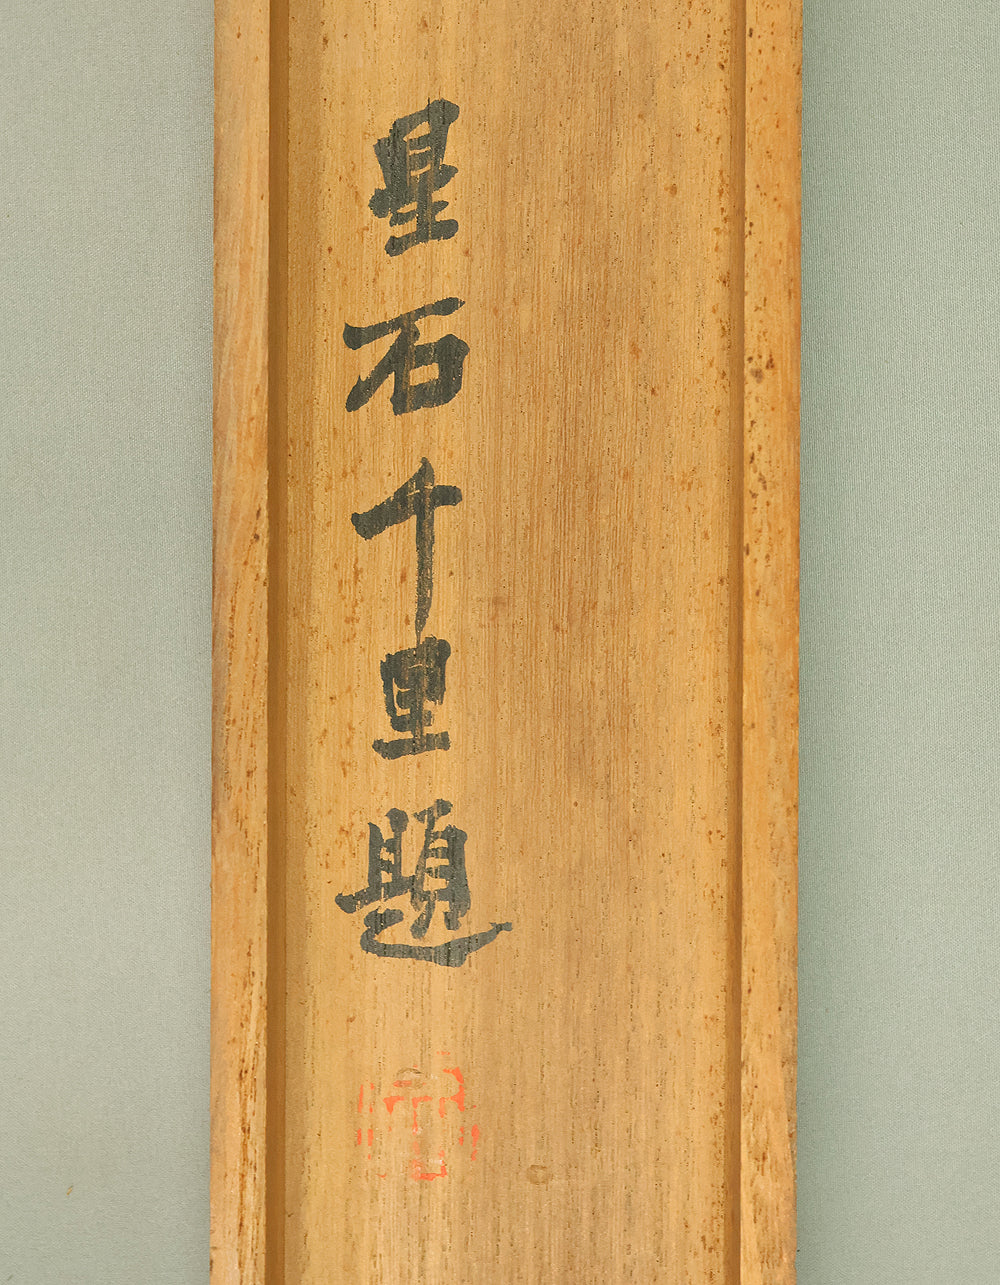 星石千里題